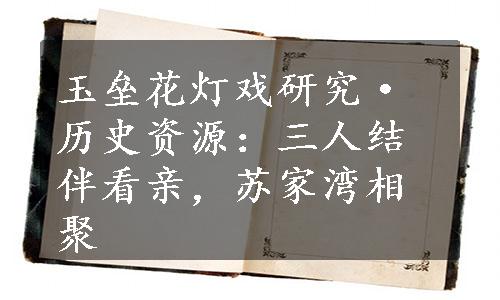 玉垒花灯戏研究·
历史资源：三人结
伴看亲，苏家湾相
聚